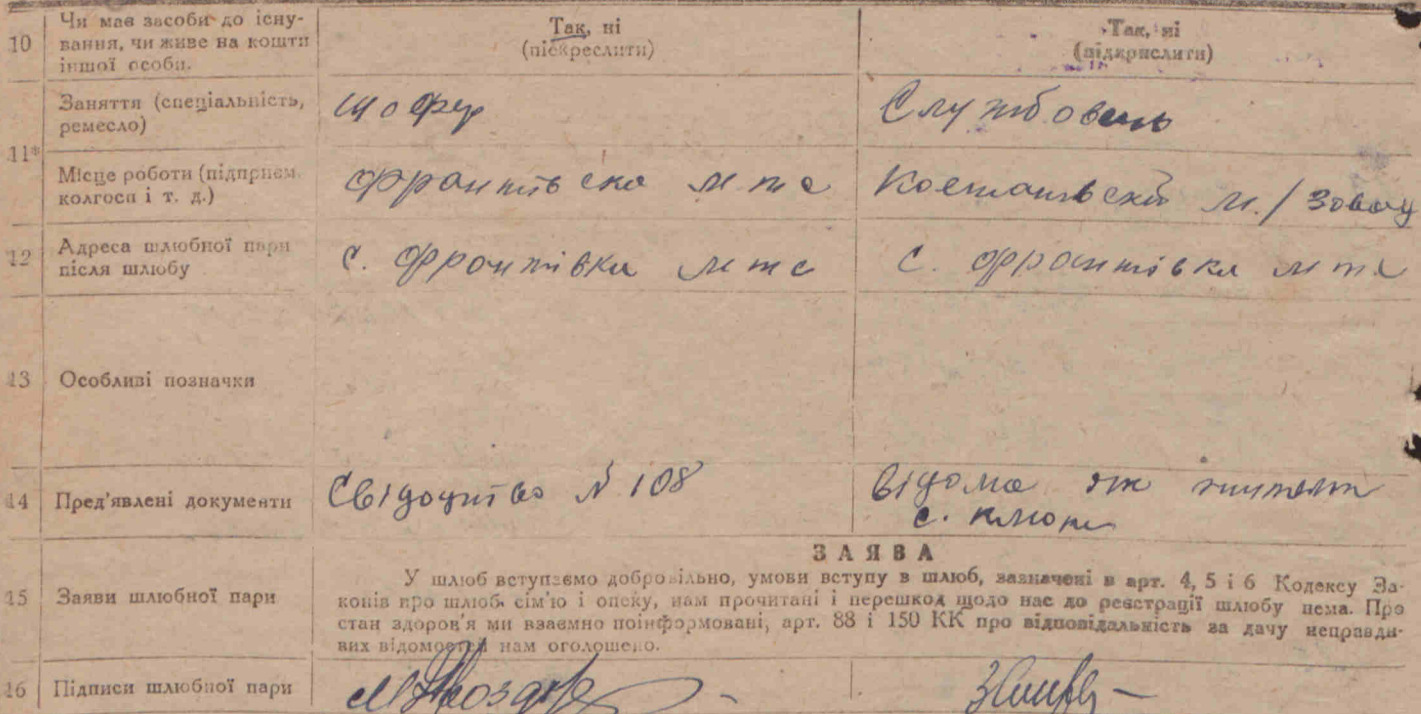 10 Чи має засоби до існу-
вання, чи живе на кошти
іншої особи.
Так, ні
(піскреслити)
Так, ні
(підкрислити)
11*
Заняття (спеціальність,
ремесло)
шофер
Службовець
Місце роботи (підприєм.
колгосп і т. д.)
Франтівска мтс
м./завод
12 Адреса шлюбної пари
після шлюбу
с. Франтівка мтс
с. Франтівка мтс
13 Особливі позначки
14 Пред'явлені документи
Свідоцтво № 108
відома
с.
15 Заяви шлюбної пари
ЗАЯВА
У шлюб вступаємо добровільно, умови вступу в шлюб, зазначені в арт. 4, 5 і 6 Кодексу За-
конів про шлюб, сім'ю і опеку, нам прочитані і перешкод щодо нас до реєстрації шлюбу нема. Про
стан здоров'я ми взаємно поінформовані, арт. 88 і 150 КК про відповідальність за дачу неправди-
вих відомостей нам оголошено.
16 Підписи шлюбної пари